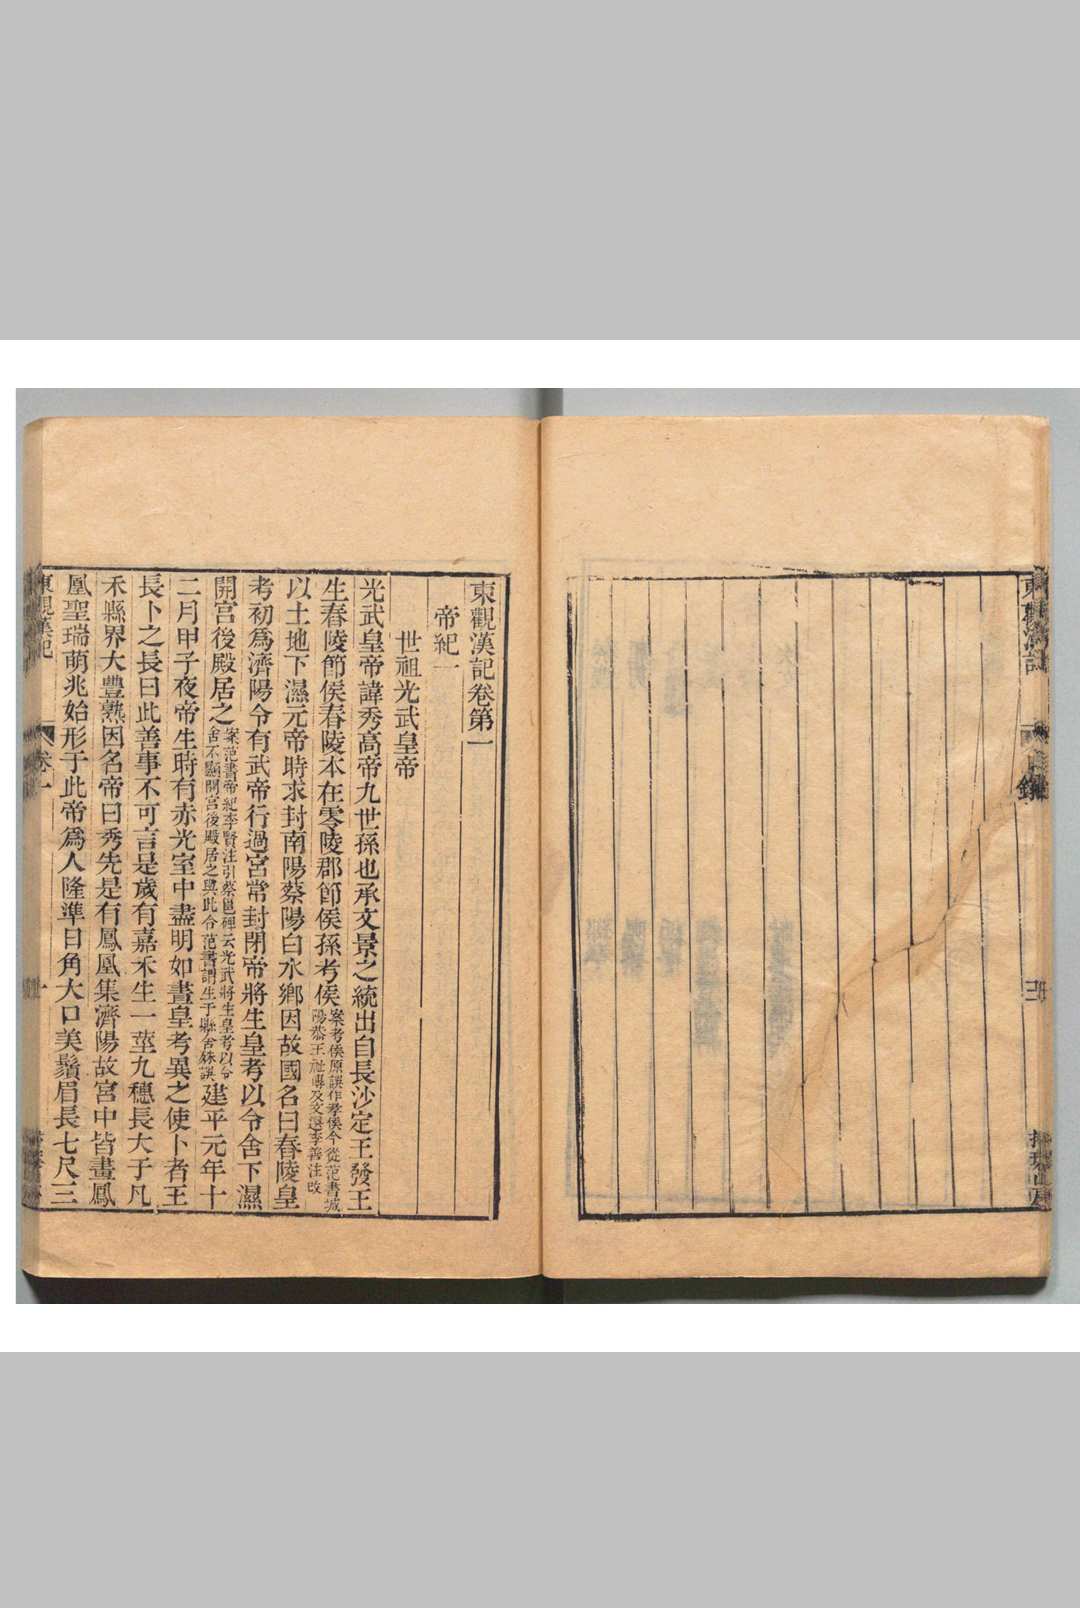 東觀漢記
目錄
東觀漢記卷第一
帝紀一
世祖光武皇帝
光武皇帝諱秀高帝九世孫也承文景之統出自長沙定王發王
生舂陵節侯舂陵本在零陵郡節侯孫考侯案考侯原誤作孝侯今從范書城陽恭王祉傳及文選李善注改
以土地下濕元帝時求封南陽蔡陽白水鄉因故國名曰舂陵皇
考初爲濟陽令有武帝行過宮常封閉帝將生皇考以令舍下濕
開宮後殿居之案范書帝紀李賢注引蔡邕碑云光武將生皇考以令舍不顯開宮後殿居之與此合范書謂生于縣舍殊誤建平元年十
二月甲子夜帝生時有赤光室中盡明如晝皇考異之使卜者王
長卜之長曰此善事不可言是歲有嘉禾生一莖九穗長大于凡
禾縣界大豐熟因名帝曰秀先是有鳳凰集濟陽故宮中皆畫鳳
凰聖瑞萌兆始形于此帝爲人隆準日角大口美鬚眉長七尺三
東觀漢記
卷一
一